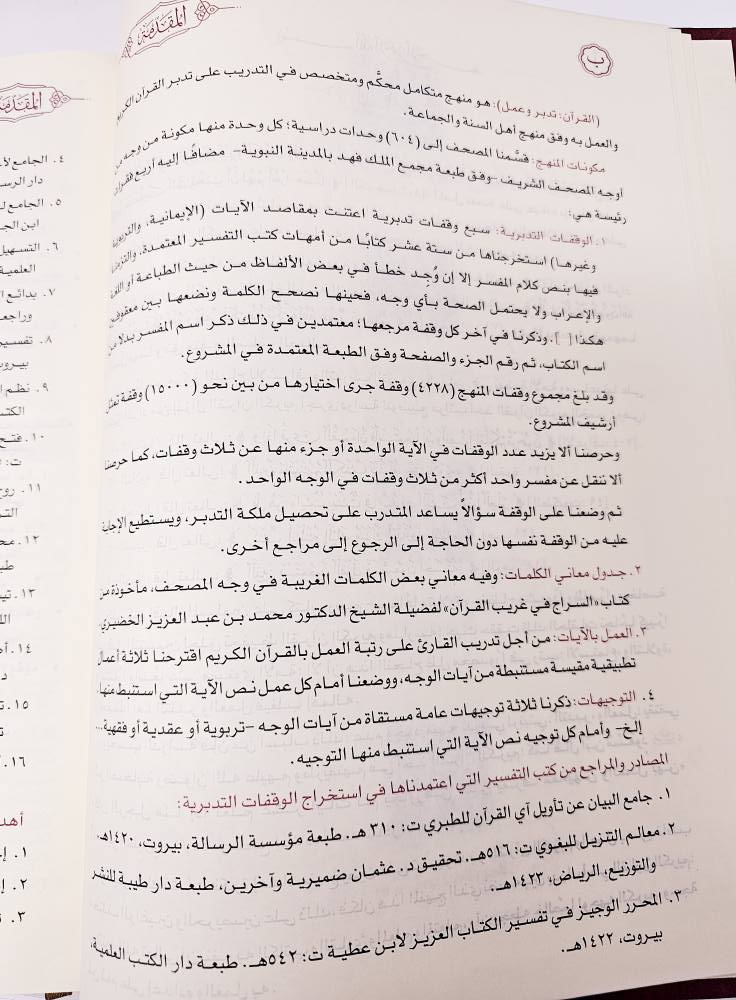 المقدمة
ب
(القرآن: تدبر وعمل): هو منهج متكامل محكَّم ومتخصص في التدريب على تدبر القرآن الكريم
والعمل به وفق منهج أهل السنة والجماعة.
مكونات المنهج: قسَّمنا المصحف إلى (٦٠٤) وحدات دراسية؛ كل وحدة منها مكونة من وجه من
أوجه المصحف الشريف -وفق طبعة مجمع الملك فهد بالمدينة النبوية- مضافًا إليه أربع فقرات
رئيسة هي:
١. الوقفات التدبرية: سبع وقفات تدبرية اعتنت بمقاصد الآيات (الإيمانية، والتربوية
وغيرها) استخرجناها من ستة عشر كتابًا من أمهات كتب التفسير المعتمدة، والتزمنا
فيها بنص كلام المفسر إلا إن وُجِد خطأ في بعض الألفاظ من حيث الطباعة أو اللغة
والإعراب ولا يحتمل الصحة بأي وجه، فحينها نصحح الكلمة ونضعها بين معقوفين
هكذا [ ]. وذكرنا في آخر كل وقفة مرجعها؛ معتمدين في ذلك ذكر اسم المفسر بدلا من
اسم الكتاب، ثم رقم الجزء والصفحة وفق الطبعة المعتمدة في المشروع.
وقد بلغ مجموع وقفات المنهج (٤٢٢٨) وقفة جرى اختيارها من بين نحو (١٥٠٠٠) وقفة تمثل
أرشيف المشروع.
وحرصنا ألا يزيد عدد الوقفات في الآية الواحدة أو جزء منها عن ثلاث وقفات، كما حرصنا
ألا ننقل عن مفسر واحد أكثر من ثلاث وقفات في الوجه الواحد.
ثم وضعنا على الوقفة سؤالاً يساعد المتدرب على تحصيل ملكة التدبر، ويستطيع الإجابة
عليه من الوقفة نفسها دون الحاجة إلى الرجوع إلى مراجع أخرى.
٢. جدول معاني الكلمات: وفيه معاني بعض الكلمات الغريبة في وجه المصحف، مأخوذة من
كتاب «السراج في غريب القرآن» لفضيلة الشيخ الدكتور محمد بن عبد العزيز الخضيري.
٣. العمل بالآيات: من أجل تدريب القارئ على رتبة العمل بالقرآن الكريم اقترحنا ثلاثة أعمال
تطبيقية مقيسة مستنبطة من آيات الوجه، ووضعنا أمام كل عمل نص الآية التي استنبط منها.
٤. التوجيهات: ذكرنا ثلاثة توجيهات عامة مستقاة من آيات الوجه -تربوية أو عقدية أو فقهية...
إلخ- وأمام كل توجيه نص الآية التي استنبط منها التوجيه.
المصادر والمراجع من كتب التفسير التي اعتمدناها في استخراج الوقفات التدبرية:
١. جامع البيان عن تأويل آي القرآن للطبري ت: ٣١٠ هـ. طبعة مؤسسة الرسالة، بيروت، ١٤٢٠هـ.
٢. معالم التنزيل للبغوي ت: ٥١٦هـ. تحقيق د. عثمان ضميرية وآخرين، طبعة دار طيبة للنشر
والتوزيع، الرياض، ١٤٢٣هـ.
٣. المحرر الوجيز في تفسير الكتاب العزيز لابن عطية ت: ٥٤٢هـ. طبعة دار الكتب العلمية،
بيروت، ١٤٢٢هـ.
المقدمة
٤. الجامع
دار
٥. الجامع
ابن
٦. التسهيل
العلمية
٧. بدائع
وراجع
٨. تفسير
بيروت
٩. نظم
١٠. فتح
ت:
١١. روح
١٢.
١٣.
١٤.
١٥.
١٦.
١.
٢.
٣.